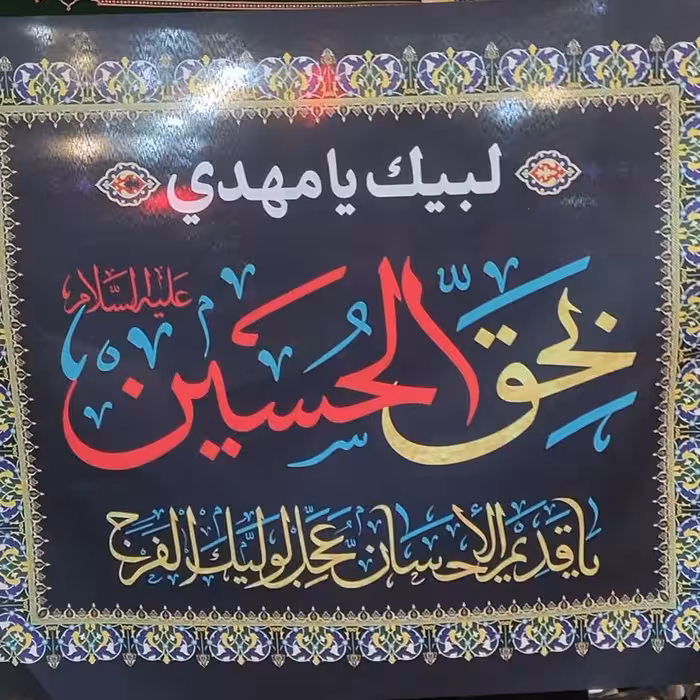 لبيك يا مهدي
بِحَقِّ الحُسَين عليه السلام
يا قديم الإحسان عجّل لوليك الفرج